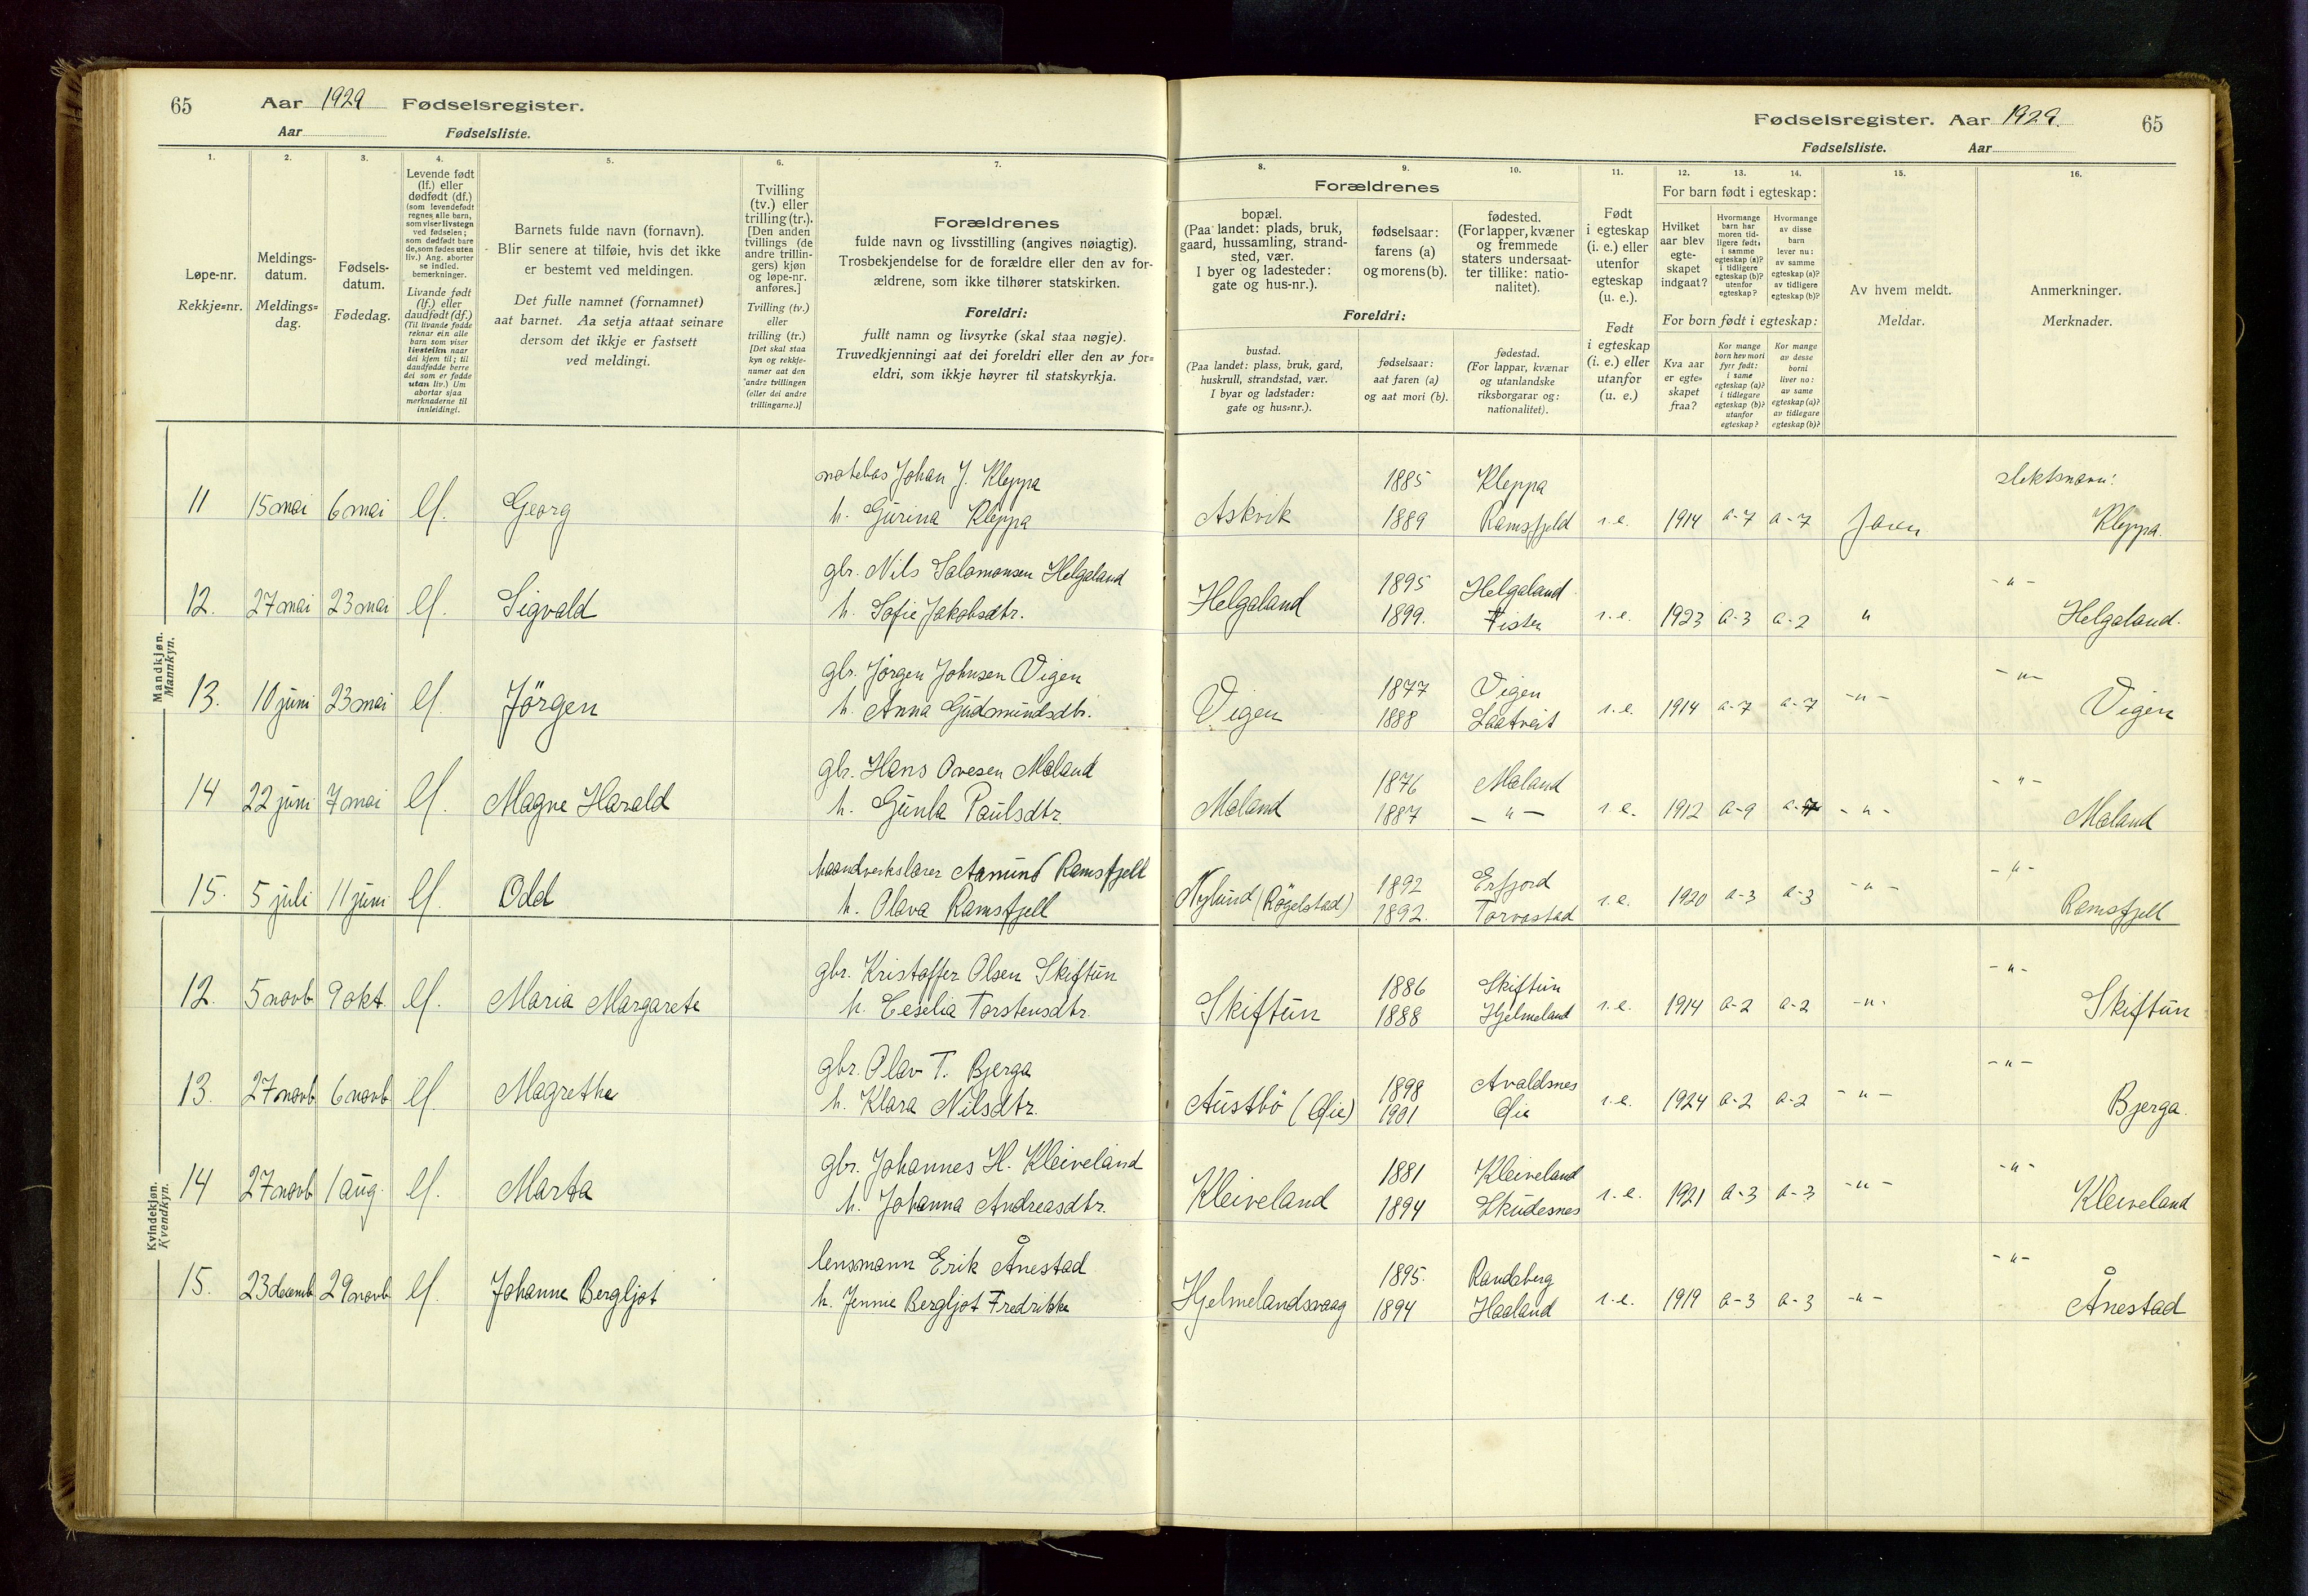 65 Aar 1929 Fødselsregister.
Aar Fødselsliste.
1. 2. 3. 4. 5. 6. 7.
Løpe-nr.
Rekkje=nr.
Meldings-
datum.
Meldings=
dag.
Fødsels-
datum.
Fødedag.
Levende født
(lf.) eller
dødfødt (df.)
(som levendefødt
regnes alle barn,
som viser livstegn
ved fødselen;
som dødfødt bare
de, som fødes uten
liv.) Ang. aborter
se indled.
bemerkninger.
Livande født
(lf.) eller
daudfødt (df.)
(Til livande fødde
reknar ein alle
barn som viser
livsteikn naar
dei kjem til; til
daudfødde berre
dei som er fødde
utan liv.) Um
abortar sjaa
merknaderne til
innleidingi.
Barnets fulde navn (fornavn).
Blir senere at tilføie, hvis det ikke
er bestemt ved meldingen.
Det fulle namnet (fornamnet)
aat barnet. Aa setja attaat seinare
dersom det ikkje er fastsett
ved meldingi.
Tvilling
(tv.) eller
trilling (tr.).
[Den anden
tvillings (de
andre trillin-
gers) kjøn
og løpe-nr.
anføres.]
Tvilling (tv.)
eller
trilling (tr.)
[Det skal staa
kyn og rekkje-
numer aat den
andre tvillingen
(eller dei andre
trillingarne.)]
Forældrenes
fulde navn og livsstilling (angives nøiagtig).
Trosbekjendelse for de forældre eller den av for-
ældrene, som ikke tilhører statskirken.
Foreldri:
fullt namn og livsyrke (skal staa nøgje).
Truvedkjenningi aat dei foreldri eller den av for=
eldri, som ikkje høyrer til statskyrkja.
Fødselsregister. Aar 1929. 65
Fødselsliste. Aar
8. 9. 10. 11. 12. 13. 14. 15. 16.
Forældrenes
bopæl.
(Paa landet: plads, bruk,
gaard, hussamling, strand-
sted, vær.
I byer og ladesteder:
gate og hus-nr.).
fødselsaar:
farens (a)
og morens (b).
fødested.
(For lapper, kvæner
og fremmede
staters undersaat-
ter tillike: natio-
nalitet).
Foreldri:
bustad.
(Paa landet: plass, bruk, gard,
huskrull, strandstad, vær.
I byar og ladstader:
gate og hus=nr.).
fødselsaar:
aat faren (a)
og aat mori (b).
fødestad.
(For lappar, kvænar
og utanlandske
riksborgarar og:
nationalitet).
Født
i egteskap
(i. e.) eller
utenfor
egteskap
(u. e.).
Født
i egteskap
(i. e.) eller
utanfor
(u. e.)
For barn født i egteskap:
Hvilket
aar blev
egte-
skapet
indgaat?
Hvormange
barn har
moren tid-
ligere født:
i samme
egteskap (a)?
i tidligere
egteskap (b)?
utenfor
egteskap?
Hvormange
av disse
barn
lever nu:
av samme
egteskap (a)?
av tidligere
egteskap (b)?
For born født i egteskap:
Kva aar
er egte=
skapet
fraa?
Kor mange
born hev mori
fyrr født:
i same
egteskap (a)?
i tidlegare
egteskap (b)?
utanfor
egteskap?
Kor mange
av desse
borni
liver no:
av same
egteskap (a)?
av tidlegare
egteskap (b)?
Av hvem meldt.
Meldar.
Anmerkninger.
Merknader.
Mandkjøn.
Mannkyn.
notebas Johan J. Kleppa 1885 Kleppa slektsnavn:
11 15 mai 6 mai lf. Georg h. Gurina Kleppa Askvik 1889 Ramsfjeld i.e. 1914 a-7 a-7 faren Kleppa.
gbr. Nils Salomonsen Helgaland 1895 Helgaland -"-
12. 27 mai 23 mai lf. Sigvald h. Sofie Jakobsdtr. Helgaland 1899. Fister i.e. 1923 a-3 a-2 " Helgaland.
gbr. Jørgen Johnsen Vigen 1877 Vigen -"-
13. 10 juni 23 mai lf. Jörgen h. Anna Gudmundsdtr. Vigen 1888 Laatveit i.e. 1914 a-7 a-7 -"- Vigen
gbr. Hans Ovesen Mæland 1876 Mæland -"-
14 22 juni 7 mai lf. Magne Harald h. Gunla Paulsdtr. Mæland 1887 -"- i.e. 1912 a-9 -"- Mæland
haandverkslærer Aamund Ramsfjell 1892 Erfjord -"-
15. 5 juli 11 juni lf. Odd h. Olava Ramsfjell Nylund (Røgelstad) 1892. Torvastad i.e. 1920 a-3 a-3 -"- Ramsfjell
Kvindekjøn.
Kvendkyn.
gbr. Kristoffer Olsen Skiftun 1886 Skiftun -"-
12. 5 novb 9 okt. lf. Maria Margarete h. Ceselia Torstensdtr. Skiftun 1888 Hjelmeland i.e. 1914 a-2 a-2 -"- Skiftun
gbr. Olav T. Bjerga 1898 Avaldsnes -"-
13. 27 novb 6 novb lf Magrethe h. Klara Nilsdtr. Austbö (Øie) 1901 Øie i.e. 1924 a-2 a-2 -"- Bjerga.
gbr. Johannes H. Kleiveland 1881 Kleiveland -"-
14 27 novb 1 aug. lf. Marta h. Johanna Andreasdtr. Kleiveland 1894 Skudesnes i.e. 1921 a-3 a-3 -"- Kleiveland
lensmann Erik Ånestad 1895. Randaberg -"-
15. 23 decemb 29 novb lf. Johanne Bergljot h. Jennie Bergljot Fredrikke Hjelmelandsvaag 1894 Haaland i.e. 1919 a-3 a-3 -"- Ånestad